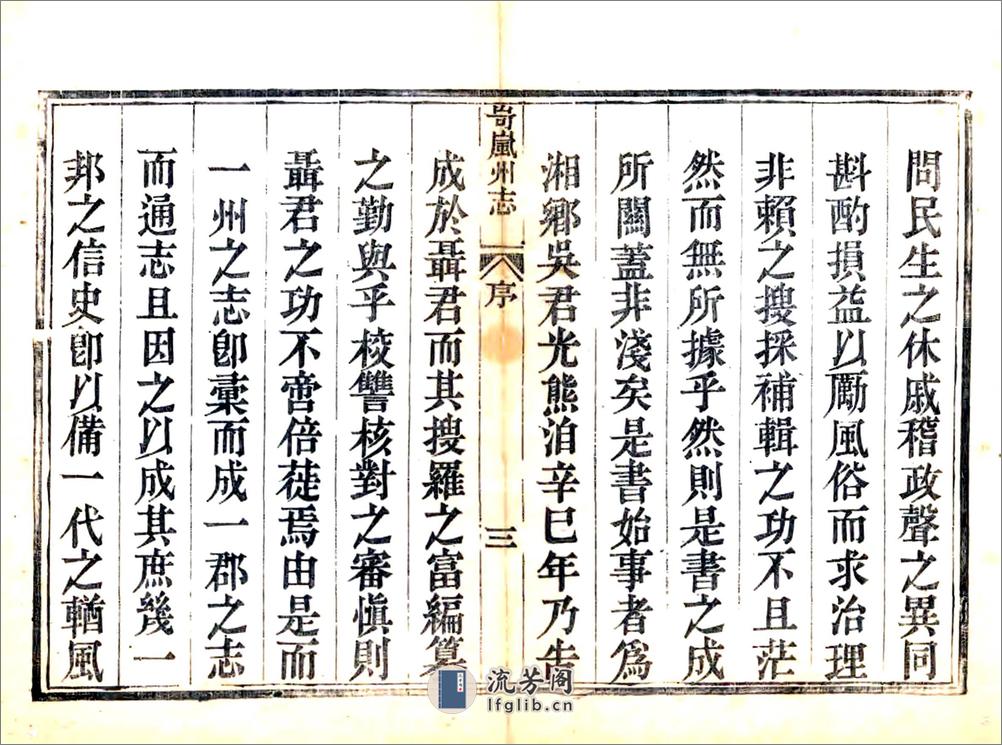 問民生之休戚稽政聲之異同
斟酌損益以勵風俗而求治理
非賴之搜採補輯之功不且茫
然而無所據乎然則是書之成
所關蓋非淺矣是書始事者爲
湘鄉吳君光熊洎辛巳年乃告
岢嵐州志
序
三
成於聶君而其搜羅之富編纂
之勤與乎校讐核對之審愼則
聶君之功不啻倍蓰焉由是而
一州之志卽彙而成一郡之志
而通志且因之以成其庶幾一
邦之信史卽以備一代之輶風
流芳阁
lfglib.cn